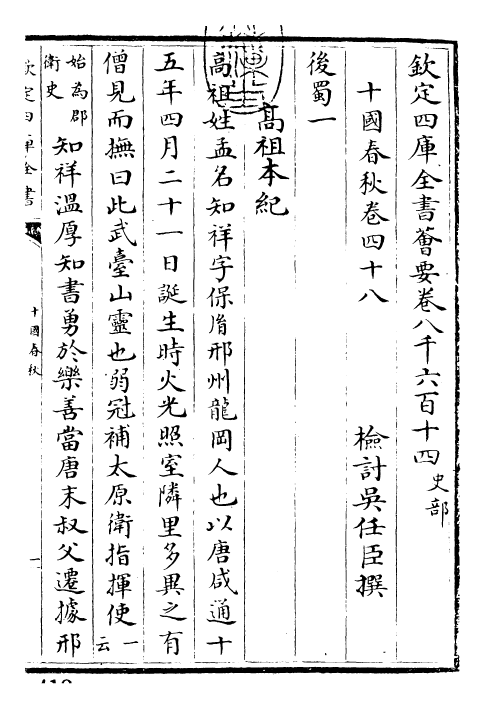 欽定四庫全書薈要卷八千六百十四 史部
十國春秋卷四十八
檢討吳任臣撰
後蜀一
高祖本紀
高祖姓孟名知祥字保胤邢州龍岡人也以唐咸通十
五年四月二十一日誕生時火光照室隣里多異之有
僧見而撫曰此武臺山靈也弱冠補太原衛指揮使一云
始為郡衛史 知祥溫厚知書勇於樂善當唐末叔父遷據邢
欽定四庫全書
十國春秋
一